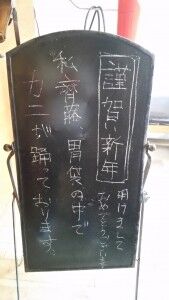 謹賀新年
明けまして
おめでとうございます
私、齊藤、胃袋の中で
カニが踊っております。